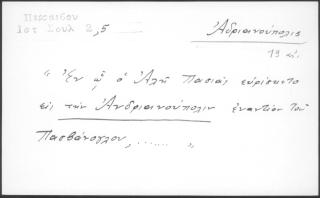 Περραιβού
Ἱστ Σουλ 2,5
Ἀδριανούπολις
19 αἰ.
“ Ἐν ᾧ ὁ Ἀλῆ Πασιᾶς εὑρίσκετο
εἰς τὴν Ἀνδριανούπολιν ἐναντίον τοῦ
Πασβάνογλου, ....... ”